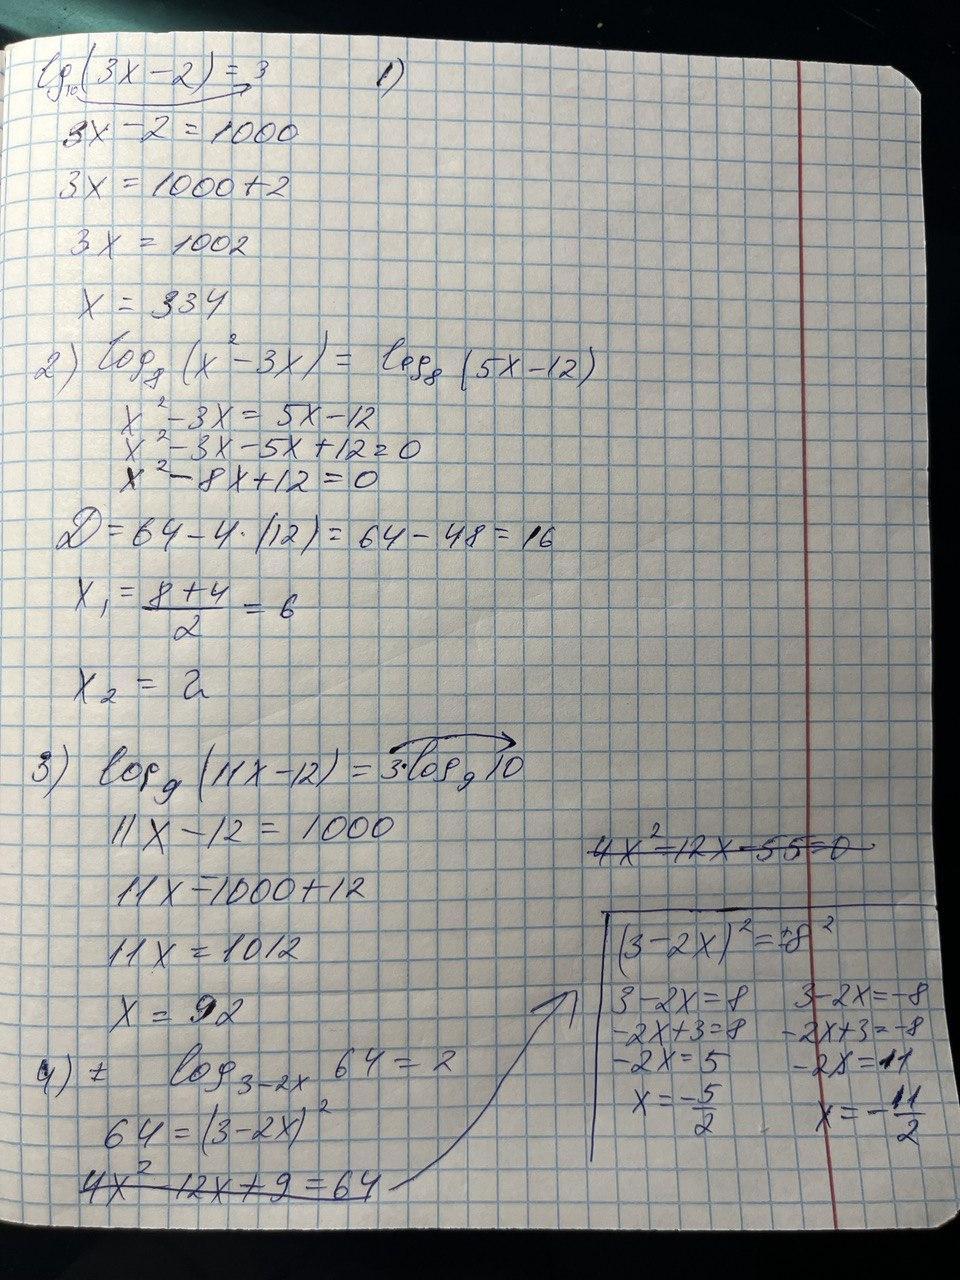 lg₁₀(3x-2) = 3 1)
3x-2 = 1000
3x = 1000+2
3x = 1002
x = 334
2) log₈(x²-3x) = log₈(5x-12)
x²-3x = 5x-12
x²-3x-5x+12=0
x²-8x+12=0
D = 64-4·(12) = 64-48 = 16
x₁ = (8+4)/2 = 6
x₂ = 2
3) log₉(11x-12) = 3·log₉10
11x-12 = 1000
11x = 1000+12
11x = 1012
x = 92
4) ± log₃₋₂ₓ 64 = 2
64 = (3-2x)²
4x²-12x+9=64
4x²-12x-55=0
(3-2x)² = ±8²
3-2x=8 3-2x=-8
-2x+3=8 -2x+3=-8
-2x=5 -2x=11
x=-5/2 x=-11/2